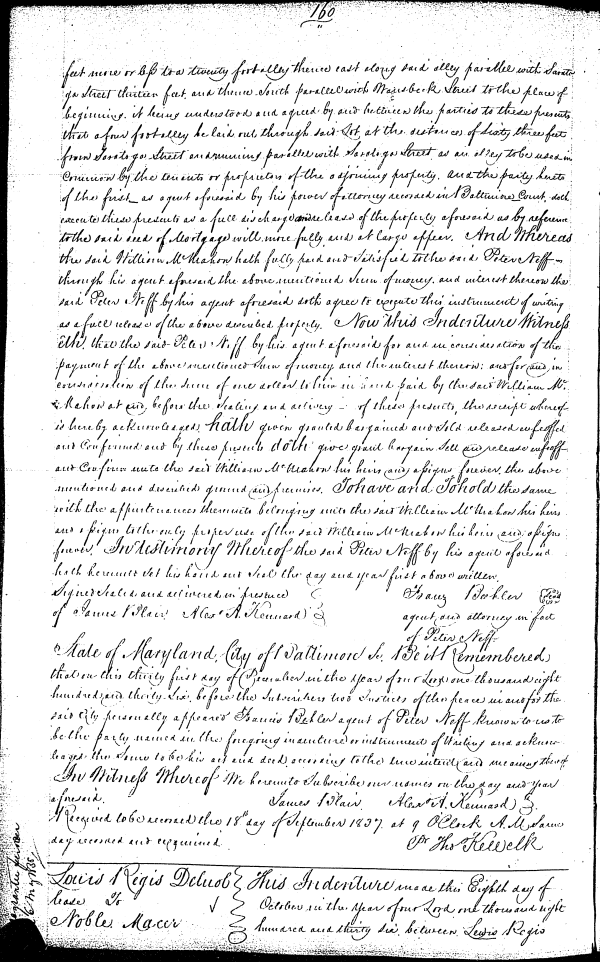 160
feet more or less to a twenty foot alley thence east along said alley parallel with Sarato
ga Street thirteen feet, and thence South parallel with Street to the place of
beginning. it being understood and agreed by and between the parties to these presents
that a four foot alley be laid out through said Lot, at the distance of Sixty three feet
from Saratoga Street and running parallel with Saratoga Street as an alley to be used in
common by the tenants or proprietors of the adjoining property. and the party hereto
of the first as agent aforesaid by his power of attorney recorded in Baltimore Court, doth
execute these presents as a full discharge and release of the property aforesaid as by reference
to the said deed of Mortgage will more fully and at large appear. And Whereas
the said William McMahon hath fully paid and Satisfied to the said Peter Neff
through his agent aforesaid the above mentioned Sum of money and interest thereon the
said Peter Neff by his agent aforesaid doth agree to execute this instrument of writing
as a full release of the above described property. Now this Indenture Witness
eth, that the said Peter Neff by his agent aforesaid for and in consideration of the
payment of the above mentioned Sum of money and the interest thereon; and for and in
consideration of the Sum of one dollar to him in hand paid by the said William Mc
Mahon at and before the Sealing and delivery of these presents, the receipt whereof
is hereby acknowledged, hath given granted bargained and Sold released enfeoffed
and Confirmed and by these presents doth give grant bargain Sell and release enfeoff
and Confirm unto the said William McMahon his heirs and assigns forever, the above
mentioned and described ground and premises. To have and To hold the same
with the appurtenances thereunto belonging unto the said William McMahon his heirs
and assigns to the only proper use of the said William McMahon his heirs and assigns
forever. In testimony Whereof the said Peter Neff by his agent aforesaid
hath hereunto Set his hand and Seal the day and year first above written.
Signed Sealed and delivered in presence
of James Blair Alexr A. Kennard
Seal
agent and attorney in fact
of Peter Neff
State of Maryland, City of Baltimore Sc, Be it Remembered
that on this thirty first day of in the year of our Lord one thousand eight
hundred and thirty Six, before the Subscribers two Justices of the peace in and for the
said City personally appeared agent of Peter Neff known to us to
be the party named in the foregoing indenture or instrument of Writing and acknow
ledged the Same to be his act and deed according to the true intent and meaning thereof
In Witness Whereof We hereunto Subscribe our names on the day and year
aforesaid. James Blair, Alexr A. Kennard
Received to be recorded the 18th day of September 1837 at 9 OClock A.M. Same
day recorded and examined. Pr Thos Kell Clk
Louis Regis
lease To
Noble Macer
This Indenture made this Eighth day of
October in the year of our Lord one thousand eight
hundred and thirty six, between Lewis Regis